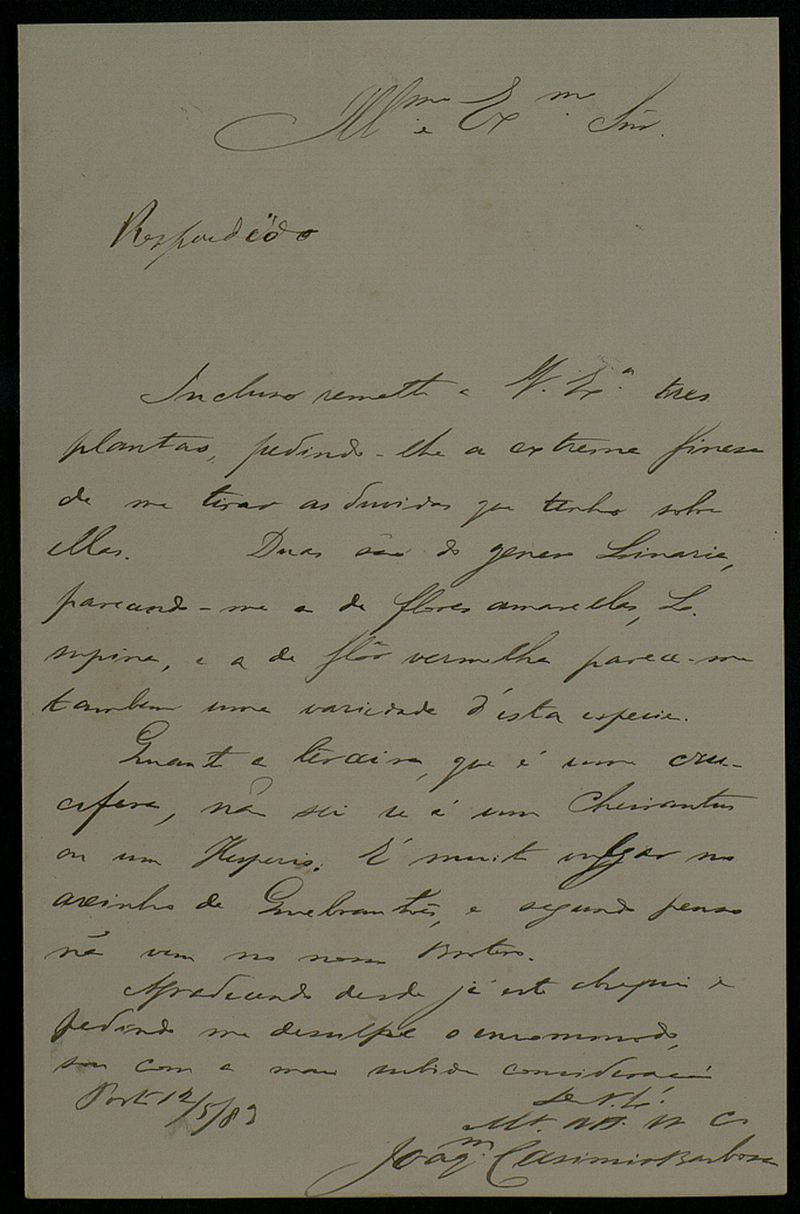 Illmo e Exmo Snr.
Respondido
Incluso remetto a V. Exa tres
plantas, pedindo-lhe a extrema finesa
de me tirar as duvidas que tenho sobre
ellas. Duas são do genero Linaria,
parecendo-me a de flores amarellas, L.
supina, e a de flôr vermelha parece-me
tambem uma variedade d'esta especie.
Quanto a terceira, que é uma cru-
cifera, não sei se é um Cheirantus
ou um Hesperis. É muito vulgar no
areinho de Quebrantões, e segundo penso
não vem no nosso Brotero.
Agradecendo desde já este obsequio e
pedindo me desculpe o incommodo,
sou com a mais subida consideração
Porto 12/5/83
De V. Exa
Joaqm Casimiro Barbosa